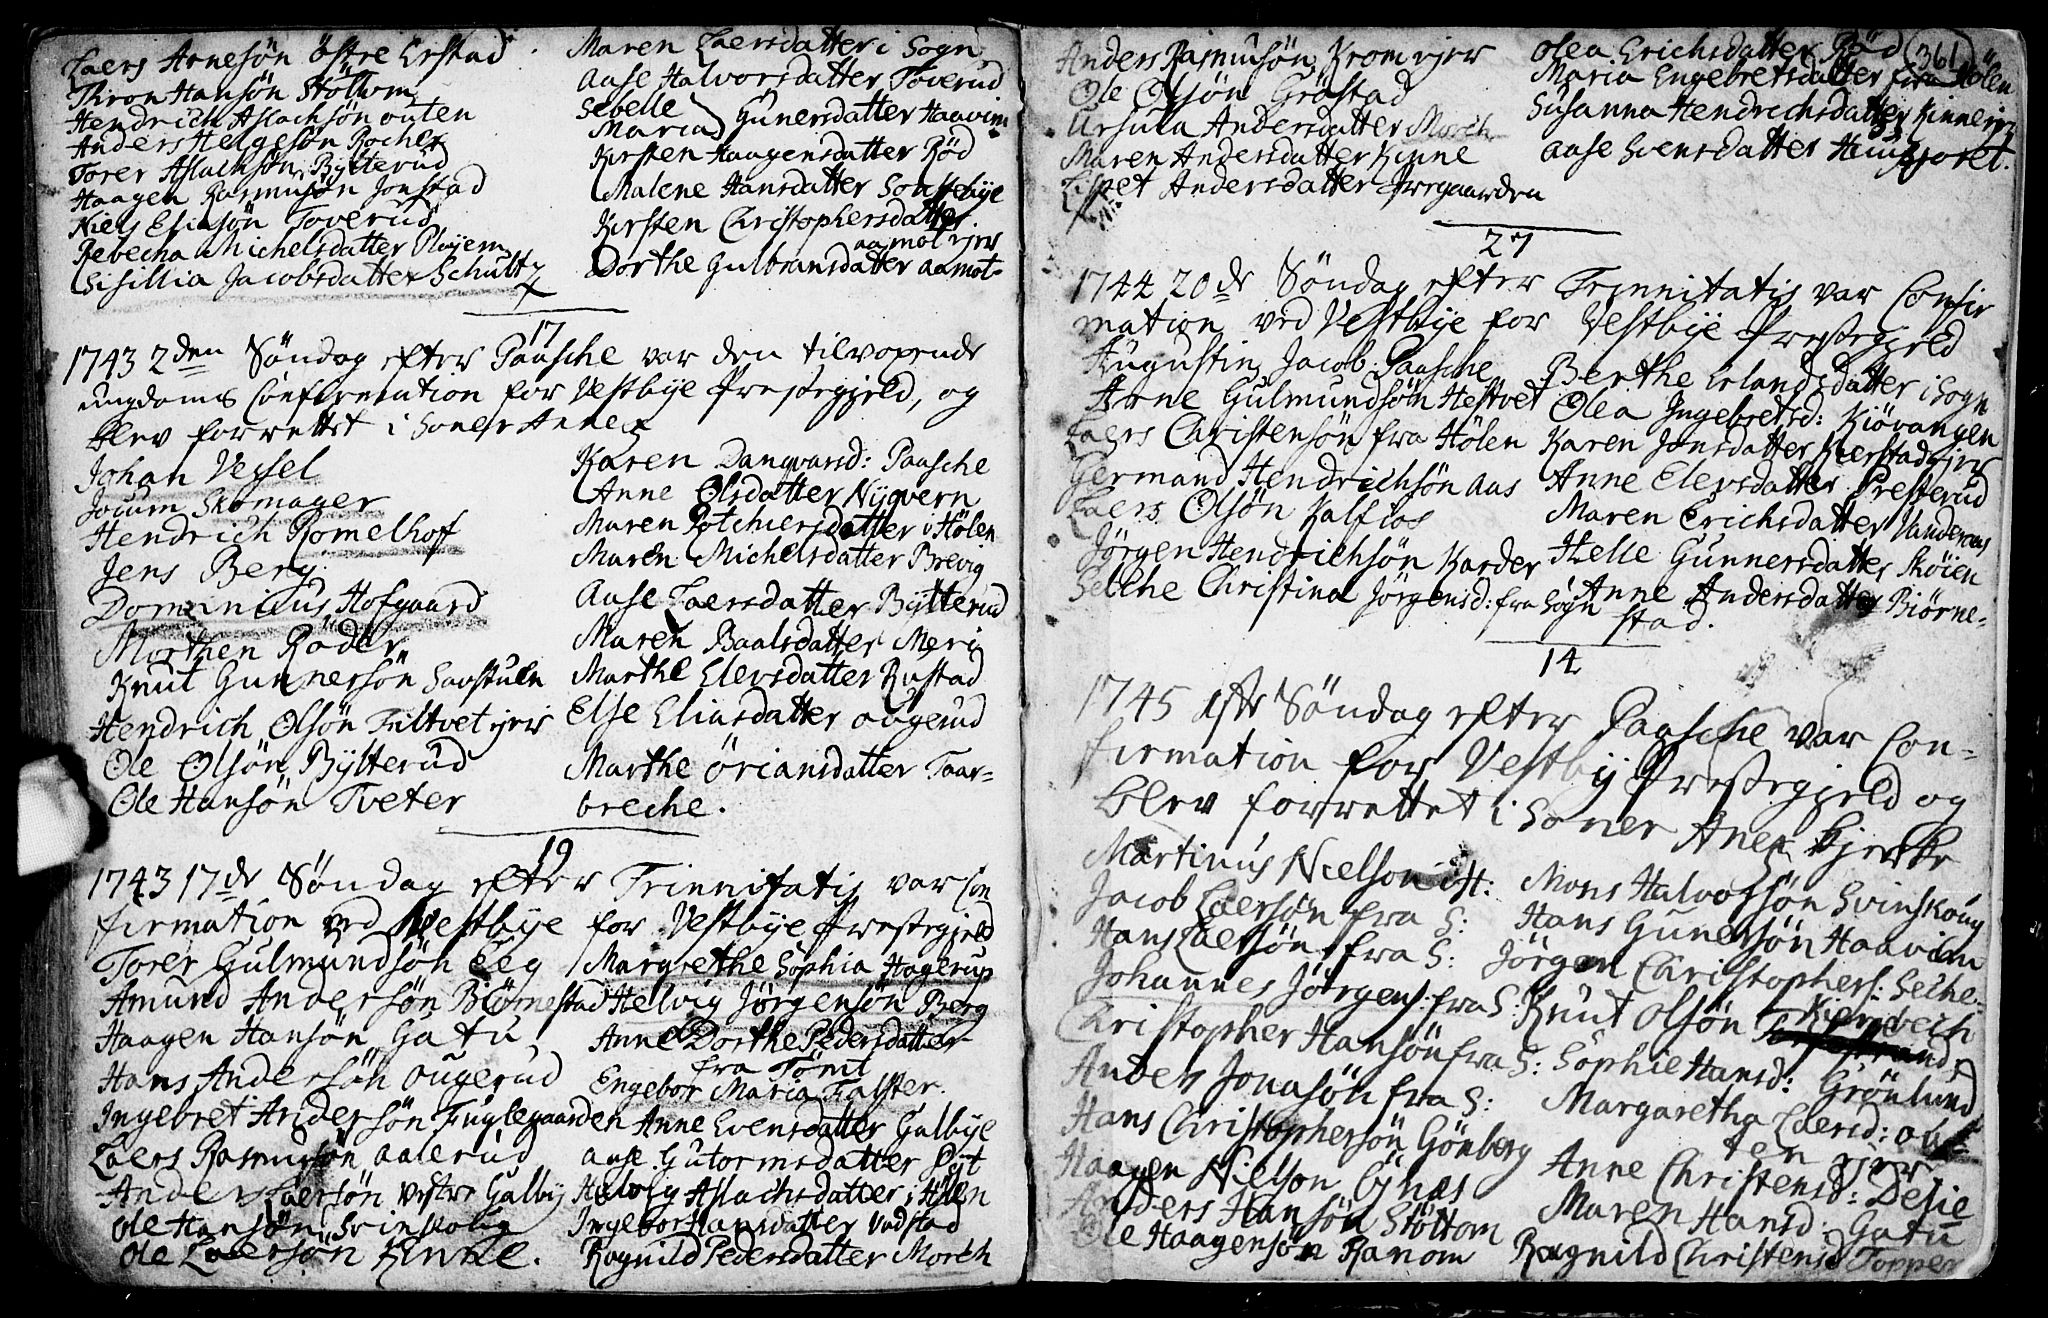 Laers Arnesøn östre Erstad
Thron Hansøn Stöltum
Hendrich Aslachsøn outen
Anders Helgesøn Rocher
Torer Aslachsøn Bÿtterud
Haagen Rasmusøn Jonstad
Niels Eliasøn Toverud
Rebecha Michelsdatter Pløyem
Sisillia Jacobsdatter Schultz
Maren Laersdatter i Sogn
Aase Halvorsdatter Toverud
Sebelle
Maria Gunersdatter Haavim
Kirsten Haagensdatter Röd
Malene Hansdatter Sonstebÿe
Kirsten Christophersdatter
aamot ejer
Dorthe Gulbransdatter aamot
17
1743 2den Söndag efter Paasche var den tilvoxende
ungdoms Confirmation for Vestbÿe Præstegjeld, og
blev forrettet i Soner Annex
Johan Vessel
Jocum Skomager
Hendrich Romelhoff
Jens Berg
Dominicus Hofgaard
Morthen Röder
Knut Gunnersön Saastuen
Hendrich Olsön Filtvet ejer
Ole Olsön Bÿtterud
Ole Hansön Tveter
Karen Danqvarsd: Paasche
Anne Olsdatter Nÿqvern
Maren Botchiersdatter i Hölen
Maren Michelsdatter Brevig
Aase Laersdatter Bÿtterud
Maren Baalsdatter Meri
Marthe Elevsdatter Rustad
Else Eliasdatter ougerud
Marthe öriansdatter Taar-
breche.
19
1743 17de Söndag efter Trinnitatis var Con
firmation ved Vestbÿe for Vestbÿe Præstegjeld
Torer Gulmundsön Eeg
Amund Andersön Biörnestad
Haagen Hansön Gatu
Hans Andersön ougerud
Ingebret Andersön Fuglegaarden
Laers Rasmusön aalerud
Anders Laersön vestre Galbÿ
Ole Hansøn Svinskoug
Ole Laersön Kinne.
Margrethe Sophia Hagerup
Helvig Jörgensön Berg
Anne Dorthe Pedersdatter
fra Tömt
Engebor Maria Falster.
Anne Evensdatter Galbÿe
Aase Gutormsdatter
Helvig Aslachsdatter i Hölen
Ingebor Hansdatter Vadstad
Ragnild Pedersdatter Morch
361
Anders Rasmusön Krom ejer
Ole Olsön Gröstad
Ursula Andersdatter Morch
Maren Andersdatter Kinne
Lispet Andersdatter Præstgaarden
Olea Erichsdatter Röd
Maria Engebretsdatter fra Hölen
Susanna Hendrichsdatter Kinne ejer
Aase Svensdatter Haugjoret.
27
1744 20de Söndag efter Trinnitatis var Confir
mation ved Vestbÿe for Vestbÿe Præstegjeld
Augustin Jacob Paasche
Arne Gulmundsön Hestvet
Laers Christensön fra Hölen
Germand Hendrichsön Aas
Laers Olsön Kalfløs
Jörgen Hendrichsön Karder
Setche Christina Jörgensd: fra Sogn
Berthe Erlandsdatter i Sogn
Olea Ingebretsd: Kiövangen
Karen Jonsdatter Kierstad ejer
Anne Elevsdatter Presterud
Maren Erichsdatter Randemaas
Helle Gunnersdatter Skøien
Anne Andersdatter Biörne-
stad.
14
1745 1ste Söndag efter Paasche var Con-
firmation for Vestbÿ Præstegjeld og
blev forrettet i Soner Anex kjerke
Martinus Nielson i H:
Jacob Laersön fra S:
Hans Laersön fra S:
Johannes Jörgens: fra S:
Christopher Hansön fra S:
Anders Jonasön fra S:
Hans Christophersön Gönberg
Haagen Nielson
Anders Hansön Stöttom
Ole Haagensön Ranom
Mons Halvorsön Svinskoug
Hans Gunersön Haavim
Jörgen Christophers: Setche
Knut Olsön Kiersbech
Sophie Hansd: Grönlund
Margaretha Laersd: ou-
ten ejer
Anne Christensd: Delie
Maren Hansd: Gatu
Ragnild Christensd Topper